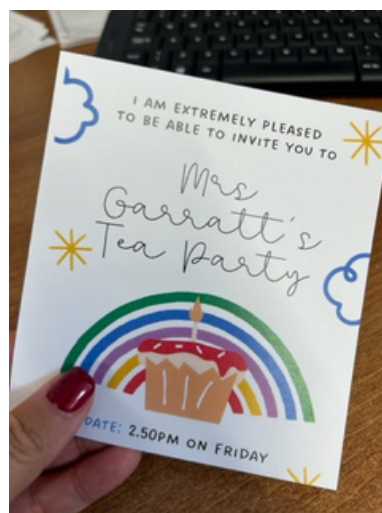 I AM EXTREMELY PLEASED
TO BE ABLE TO INVITE YOU TO
Mrs
Garratt's
Tea Party
DATE: 2.50PM ON FRIDAY